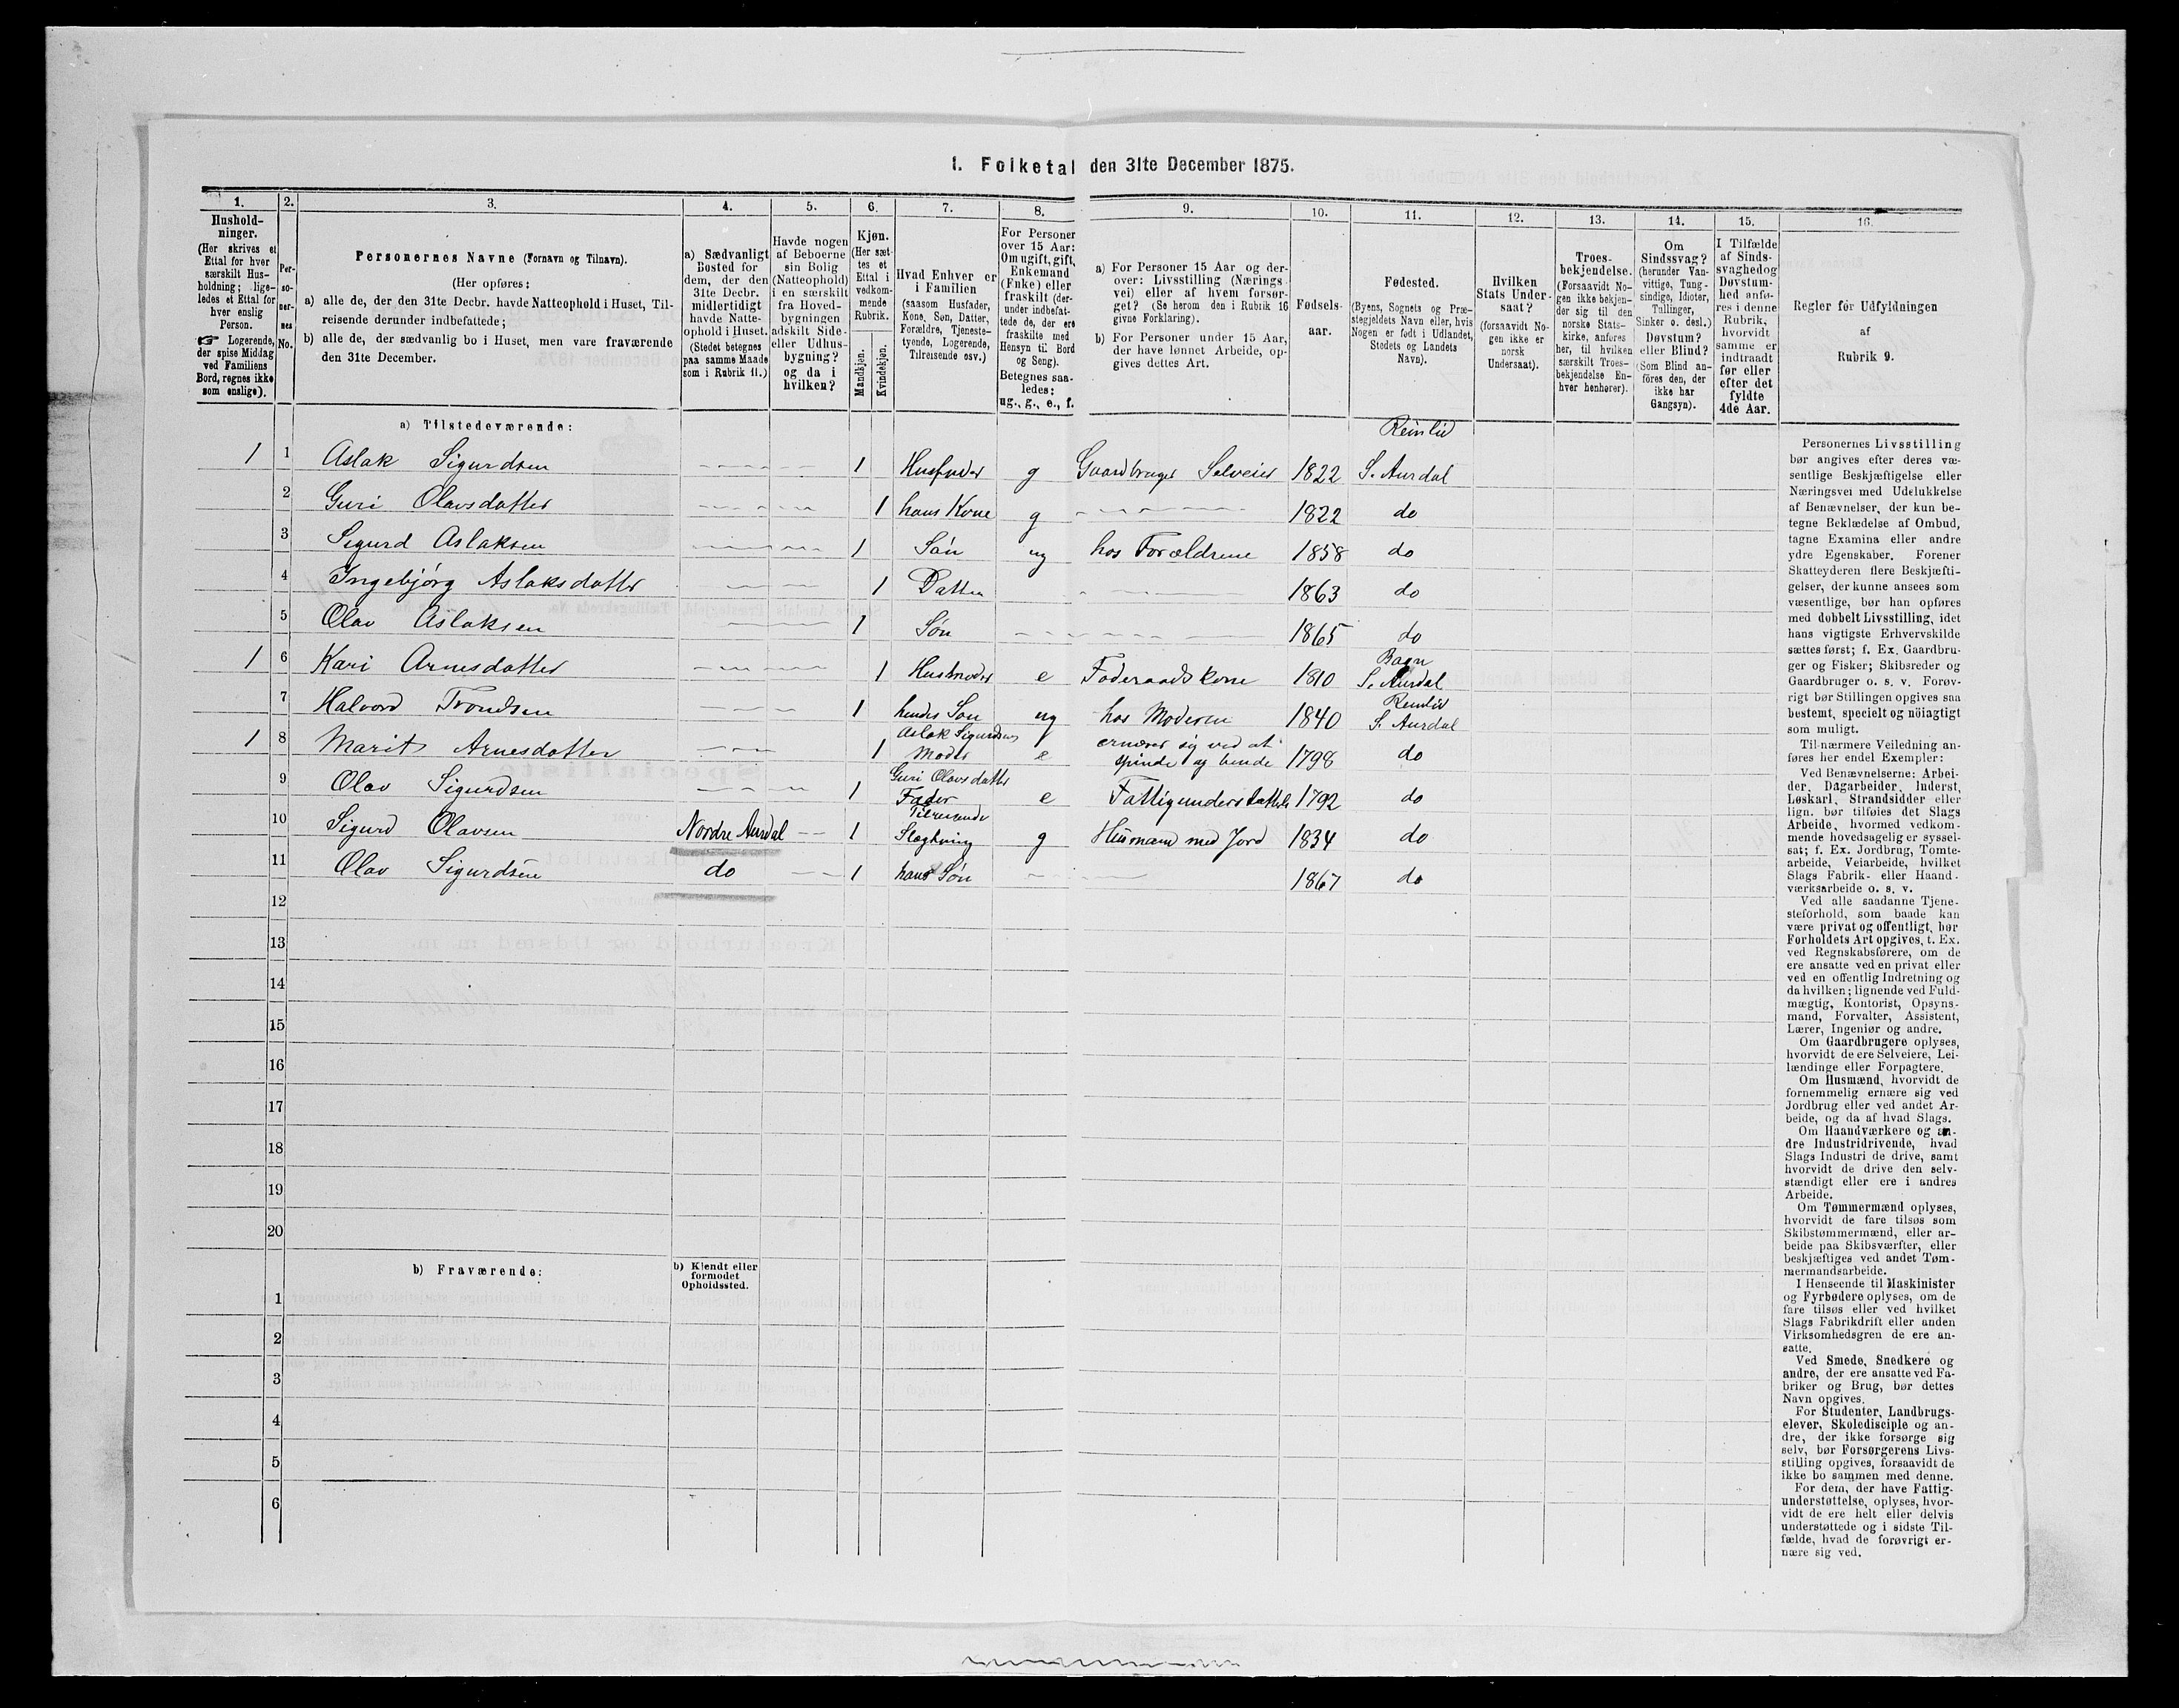 1. Folketal den 31te December 1875.
1. 2. 3. 4. 5. 6. 7. 8. 9. 10. 11. 12. 13. 14. 15. 16.
Hushold-
ninger.
(Her skrives et
Ettal for hver
særskilt Hus-
holdning; lige-
ledes et Ettal for
hver enslig
Person.
☞ Logerende,
der spise Middag
ved Familiens
Bord, regnes ikke
som enslige).
Per-
so-
ner-
nes
No.
Personernes Navne (Fornavn og Tilnavn).
(Her opføres:
a) alle de, der den 31te Decbr. havde Natteophold i Huset, Til-
reisende derunder indbefattede;
b) alle de, der sædvanlig bo i Huset, men vare fraværende
den 31te December.
a) Sædvanligt
Bosted for
dem, der den
31te Decbr.
midlertidigt
havde Natte-
ophold i Huset.
(Stedet betegnes
paa samme Maade
som i Rubrik 11.)
Havde nogen
af Beboerne
sin Bolig
(Natteophold)
i en særskilt
fra Hoved-
bygningen
adskilt Side-
eller Udhus-
bygning?
og da i
hvilken?
Kjøn.
(Her sæt-
tes et
Ettal i
vedkom-
mende
Rubrik.
Mandkjøn.
Kvindekjøn.
Hvad Enhver er
i Familien
(saasom Husfader,
Kone, Søn, Datter,
Forældre, Tjeneste-
tyende, Logerende,
Tilreisende osv.)
For Personer
over 15 Aar:
Om ugift, gift,
Enkemand
(Enke) eller
fraskilt (der-
under indbefat-
tede de, der ere
fraskilte med
Hensyn til Bord
og Seng).
Betegnes saa-
ledes:
ug., g., e., f.
a) For Personer 15 Aar og der-
over: Livsstilling (Nærings-
vei) eller af hvem forsør-
get? (Se herom den i Rubrik 16
givne Forklaring).
b) For Personer under 15 Aar,
der have lønnet Arbeide, op-
gives dettes Art.
Fødsels-
aar.
Fødested.
(Byens, Sognets og Præ-
stegjeldets Navn eller, hvis
Nogen er født i Udlandet,
Stedets og Landets
Navn).
Hvilken
Stats Under-
saat?
(forsaavidt No-
gen ikke er
norsk
Undersaat).
Troes-
bekjendelse.
(Forsaavidt No-
gen ikke bekjen-
der sig til den
norske Stats-
kirke, anføres
her, til hvilken
særskilt Troes-
bekjendelse En-
hver henhører).
Om
Sindssvag?
(herunder Van-
vittige, Tung-
sindige, Idioter,
Tullinger,
Sinker o. desl.)
Døvstum?
eller Blind?
(Som Blind an-
føres den, der
ikke har
Gangsyn).
I Tilfælde
af Sinds-
svaghed og
Døvstum-
hed anfø-
res i denne
Rubrik,
hvorvidt
samme er
indtraadt
før eller
efter det
fyldte
4de Aar.
Regler for Udfyldningen
af
Rubrik 9.
a) Tilstedeværende:
Reinlid
1 1 Aslak Sigurdsen 1 Husfader g Gaardbruger Selveier 1822 S. Aurdal
2 Guri Olavsdatter 1 hans Kone g 1822 do
3 Sigurd Aslaksen 1 Søn ug hos Forældrene 1858 do
4 Ingebjørg Aslaksdatter 1 Datter 1863 do
5 Olav Aslaksen 1 Søn 1865 do
Bagn
1 6 Kari Arnesdatter 1 Husmoder e Føderaadskone 1810 S. Aurdal
Reinlid
7 Halvord Trondsen 1 hendes Søn ug hos Moderen 1840 S. Aurdal
Aslak Sigurdsens ernærer sig ved at
1 8 Marit Arnesdatter 1 Moder e spinde og binde 1798 do
Guri Olavsdatter
9 Olav Sigurdsen 1 Fader e Fattigunderstøttelse 1792 do
Tilreisende
10 Sigurd Olavsen Nordre Aurdal 1 Slægtning g Husmand med Jord 1834 do
11 Olav Sigurdsen do 1 hans Søn 1867 do
12
13
14
15
16
17
18
19
20
b) Fraværende:
b) Kjendt eller
formodet
Opholdssted.
1
2
3
4
5
6
Personernes Livsstilling
bør angives efter deres væ-
sentlige Beskjæftigelse eller
Næringsvei med Udelukkelse
af Benævnelser, der kun be-
tegne Beklædelse af Ombud,
tagne Examina eller andre
ydre Egenskaber. Forener
Skatteyderen flere Beskjæfti-
gelser, der kunne ansees som
væsentlige, bør han opføres
med dobbelt Livsstilling, idet
hans vigtigste Erhvervskilde
sættes først; f. Ex. Gaardbru-
ger og Fisker; Skibsreder og
Gaardbruger o. s. v. Forøv-
rigt bør Stillingen opgives saa
bestemt, specielt og nöiagtigt
som muligt.
Til nærmere Veiledning an-
føres her endel Exempler:
Ved Benævnelserne: Arbei-
der, Dagarbeider, Inderst,
Løskarl, Strandsidder eller
lign. bør tilføies det Slags
Arbeide, hvormed vedkom-
mende hovedsagelig er syssel-
sat; f. Ex. Jordbrug, Tomte-
arbeide, Veiarbeide, hvilket
Slags Fabrik- eller Haand-
værksarbeide o. s. v.
Ved alle saadanne Tjene-
steforhold, som baade kan
være privat og offentligt, bør
Forholdets Art opgives, t. Ex.
ved Regnskabsførere, om de
ere ansatte ved en privat eller
ved en offentlig Indretning og
da hvilken; lignende ved Fuld-
mægtig, Kontorist, Opsyns-
mand, Forvalter, Assistent,
Lærer, Ingeniør og andre.
Om Gaardbrugere oplyses,
hvorvidt de ere Selveiere, Lei-
lændinge eller Forpagtere.
Om Husmænd, hvorvidt de
fornemmelig ernære sig ved
Jordbrug eller ved andet Ar-
beide, og da af hvad Slags.
Om Haandværkere og an-
dre Industridrivende, hvad
Slags Industri de drive, samt
hvorvidt de drive den selv-
stændigt eller ere i andres
Arbeide.
Om Tømmermænd oplyses,
hvorvidt de fare tilsøs som
Skibstømmermænd, eller ar-
beide paa Skibsværfter, eller
beskjæftiges ved andet Tøm-
mermandsarbeide.
I Henseende til Maskinister
og Fyrbødere oplyses, om de
fare tilsøs eller ved hvilket
Slags Fabrikdrift eller anden
Virksomhedsgren de ere an-
satte.
Ved Smede, Snedkere og
andre, der ere ansatte ved Fa-
briker og Brug, bør dettes
Navn opgives.
For Studenter, Landbrugs-
elever, Skoledisciple og an-
dre, der ikke forsørge sig
selv, bør Forsørgerens Livs-
stilling opgives, forsaavidt de
ikke bo sammen med denne.
For dem, der have Fattig-
understøttelse, oplyses, hvor-
vidt de ere helt eller delvis
understøttede og i sidste Til-
fælde, hvad de forøvrigt er-
nære sig ved.